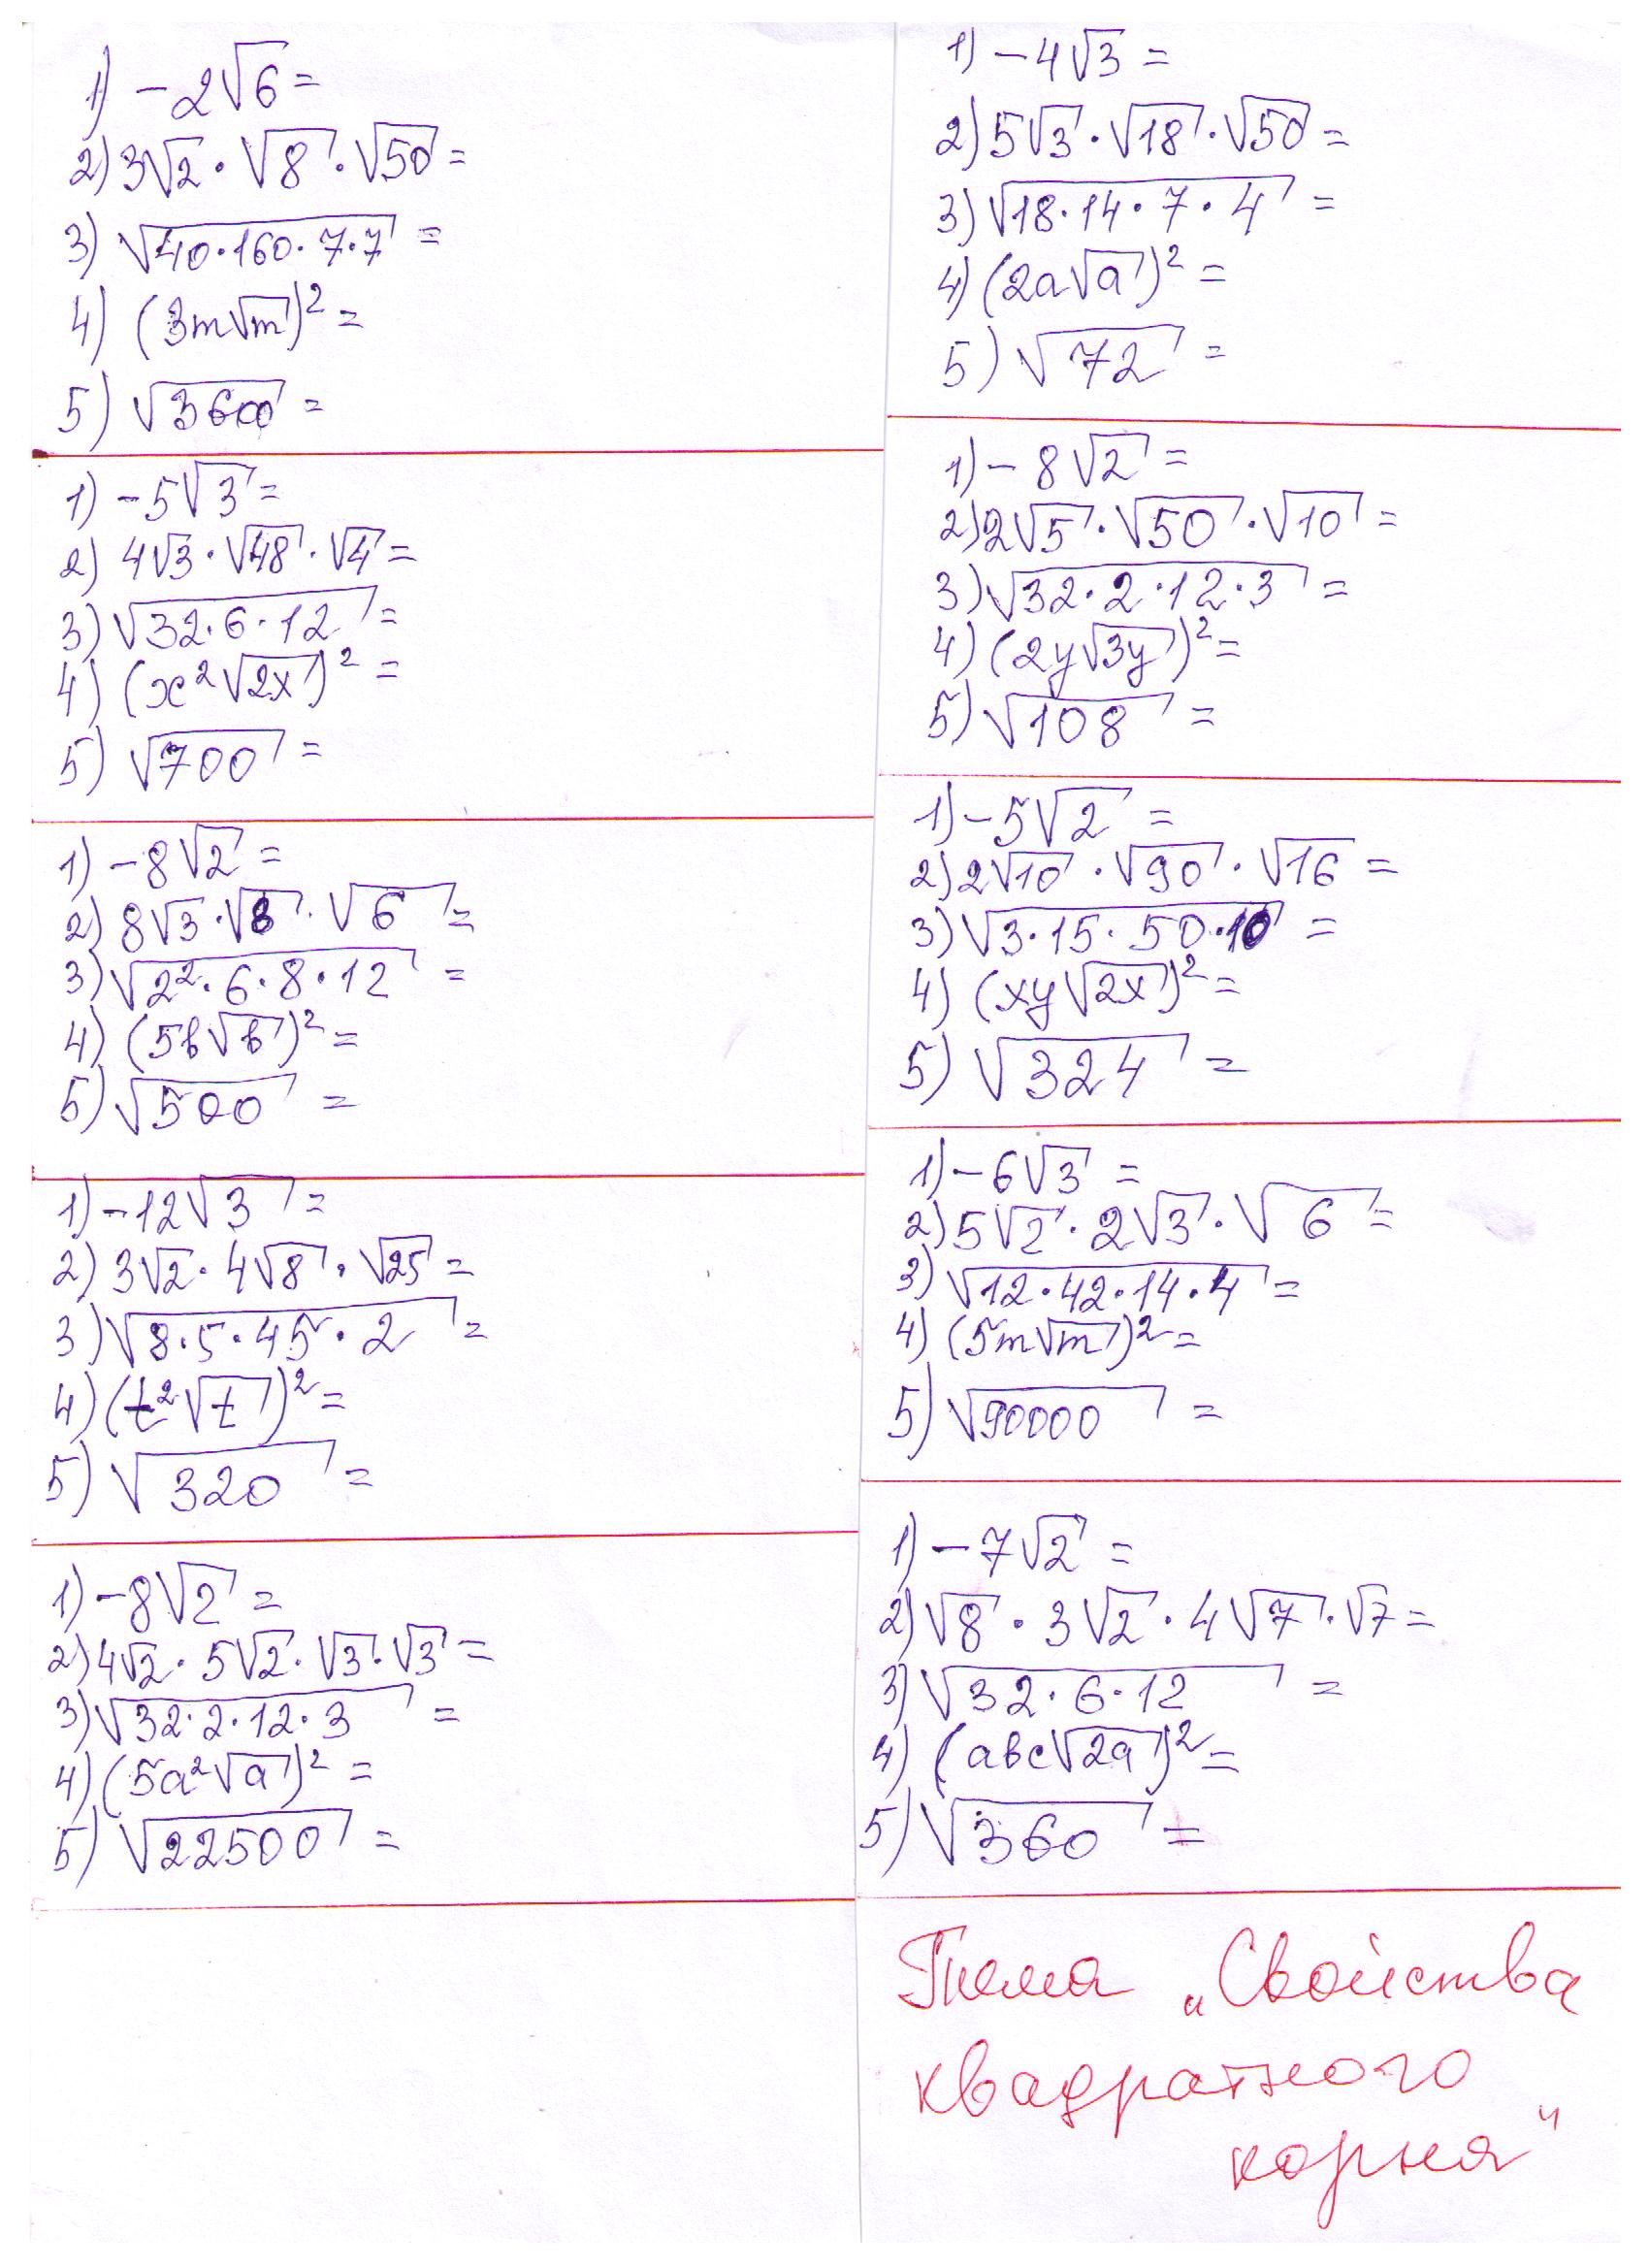 1) -2√6 =
2) 3√2 · √8 · √50 =
3) √40·160·7·7 =
4) (3m√m)² =
5) √3600 =
1) -5√3 =
2) 4√3 · √48 · √4 =
3) √32·6·12 =
4) (x²√2x)² =
5) √700 =
1) -8√2 =
2) 8√3 · √8 · √6 =
3) √2²·6·8·12 =
4) (5b√b)² =
5) √500 =
1) -12√3 =
2) 3√2 · 4√8 · √25 =
3) √8·5·45·2 =
4) (t²√t)² =
5) √320 =
1) -8√2 =
2) 4√2 · 5√2 · √3 · √3 =
3) √32·2·12·3 =
4) (5a²√a)² =
5) √22500 =
1) -4√3 =
2) 5√3 · √18 · √50 =
3) √18·14·7·4 =
4) (2a√a)² =
5) √72 =
1) -8√2 =
2) 2√5 · √50 · √10 =
3) √32·2·12·3 =
4) (2y√3y)² =
5) √108 =
1) -5√2 =
2) 2√10 · √90 · √16 =
3) √3·15·50·10 =
4) (xy√2x)² =
5) √324 =
1) -6√3 =
2) 5√2 · 2√3 · √6 =
3) √12·42·14·4 =
4) (5m√m)² =
5) √90000 =
1) -7√2 =
2) √8 · 3√2 · 4√7 · √7 =
3) √32·6·12 =
4) (abc√2a)² =
5) √360 =
Тема „Свойства
квадратного
корня"